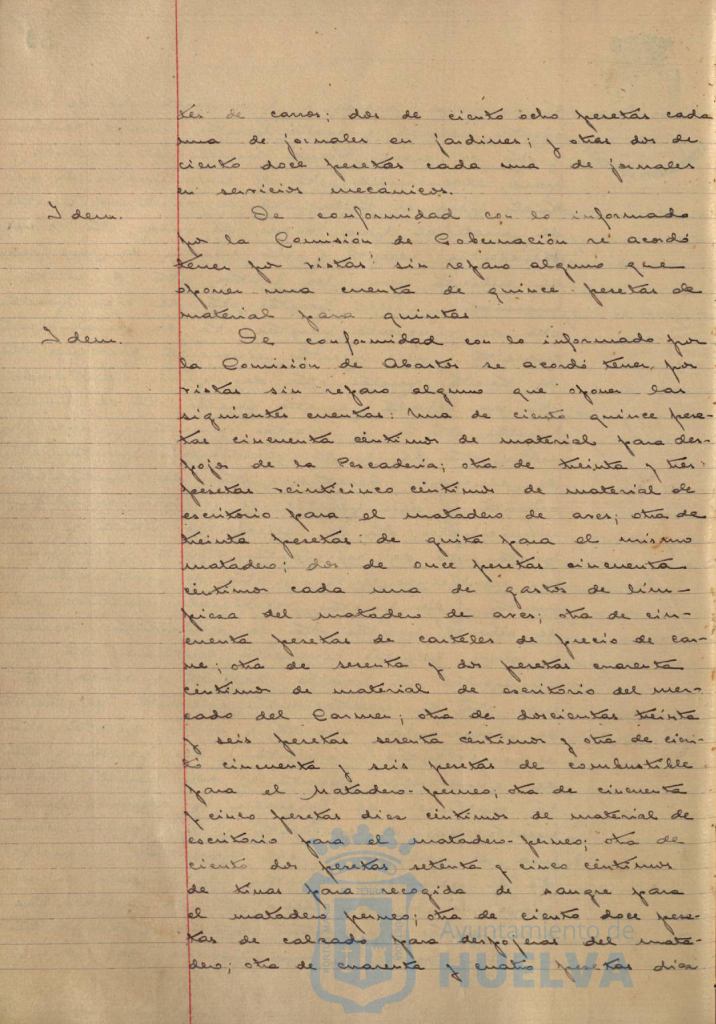 tes de carros; dos de ciento ocho pesetas cada
una de jornales en jardines; y otras dos de
ciento doce pesetas cada una de jornales
en servicios mecánicos.
Idem. De conformidad con lo informado
por la Comisión de Gobernación se acordó
tener por vistas sin reparo alguno que
oponer una cuenta de quince pesetas de
material para quintas
Idem. De conformidad con lo informado por
la Comisión de Abastos se acordó tener por
vistas sin reparo alguno que oponer las
siguientes cuentas: una de ciento quince pese-
tas cincuenta céntimos de material para des-
pojos de la Pescadería; otra de treinta y tres
pesetas veinticinco céntimos de material de
escritorio para el matadero de aves; otra de
treinta pesetas de guita para el mismo
matadero; dos de once pesetas cincuenta
céntimos cada una de gastos de lim-
pieza del matadero de aves; otra de cin-
cuenta pesetas de carteles de precio de car-
ne; otra de sesenta y dos pesetas cuarenta
céntimos de material de escritorio del mer-
cado del Carmen; otra de doscientas treinta
y seis pesetas sesenta céntimos y otra de cien-
to cincuenta y seis pesetas de combustible
para el matadero-perneo; otra de cincuenta
y cinco pesetas diez céntimos de material de
escritorio para el matadero-perneo; otra de
ciento dos pesetas setenta y cinco céntimos
de tinas para recogida de sangre para
el matadero perneo; otra de ciento doce pese-
tas de calzado para despojeras del mata-
dero; otra de cuarenta y cuatro pesetas diez
Ayuntamiento de
HUELVA